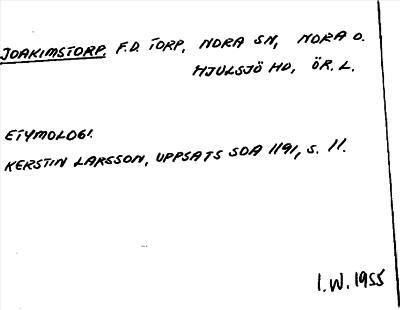 JOAKIMSTORP, F.D. TORP, NORA SN, NORA O.
HJULSJÖ HD, ÖR. L.
ETYMOLOGI.
KERSTIN LARSSON, UPPSATS SOA 1191, S. 11.
I.W. 1955